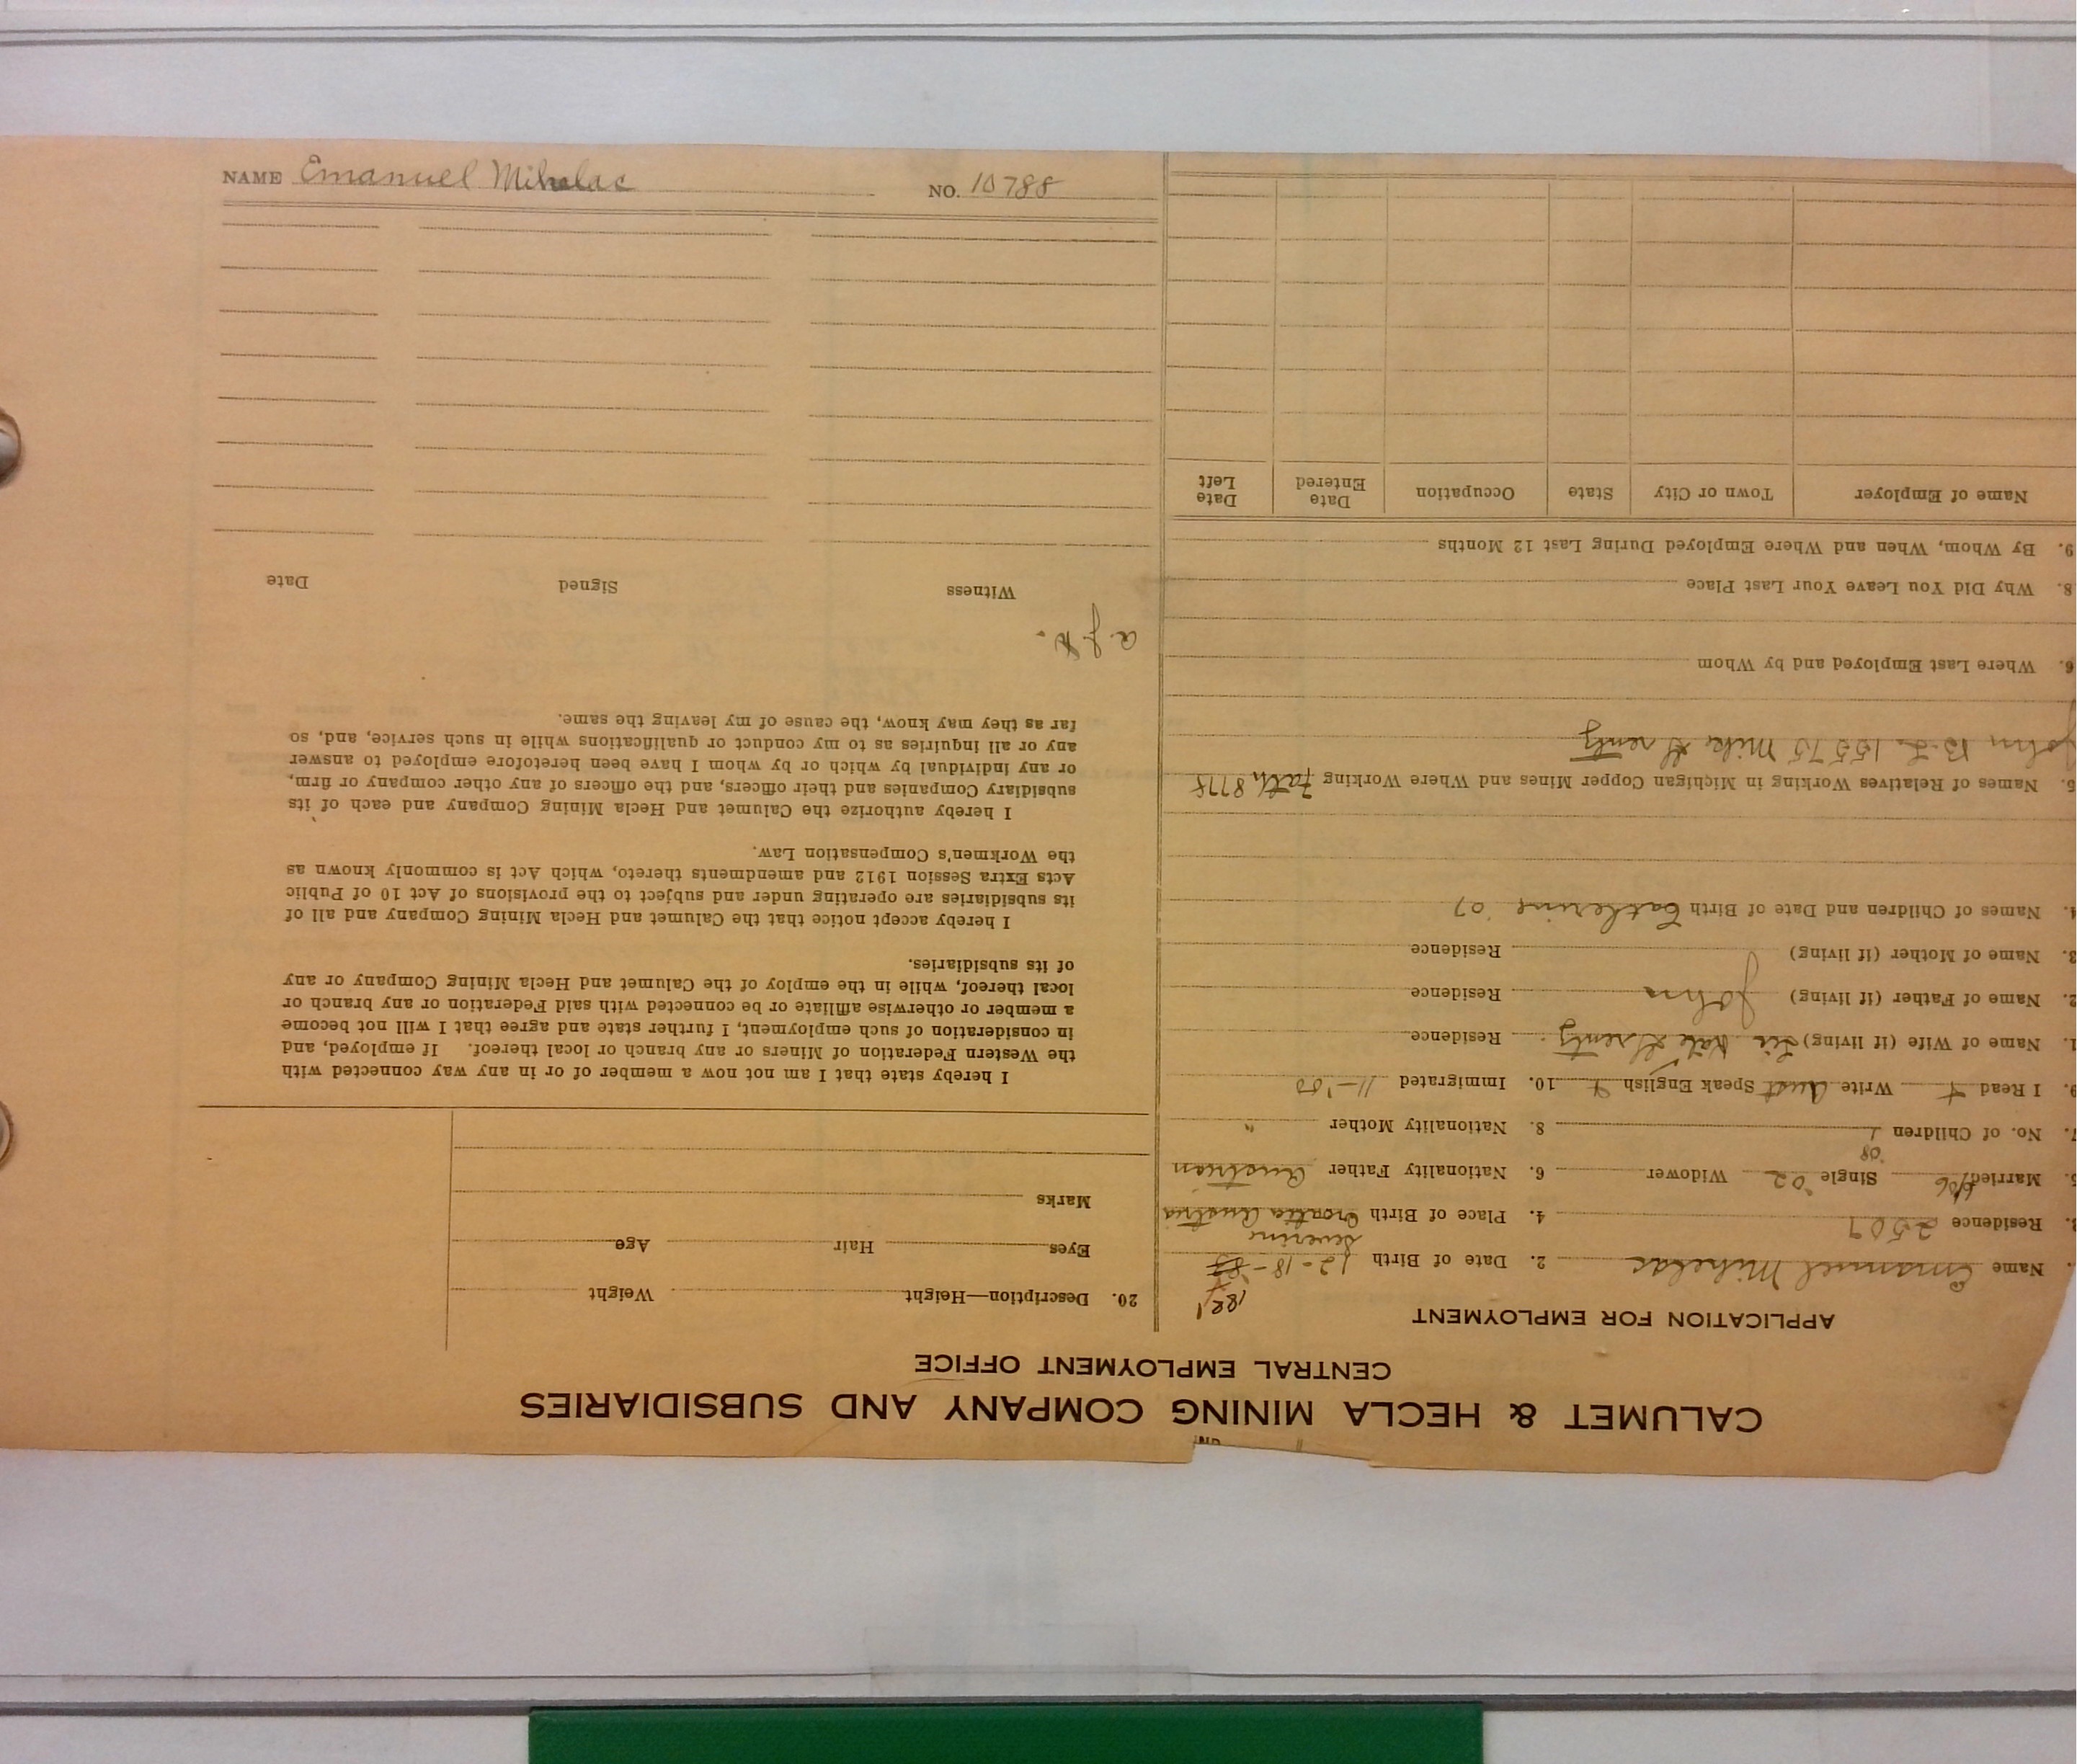 CALUMET & HECLA MINING COMPANY AND SUBSIDIARIES
CENTRAL EMPLOYMENT OFFICE
APPLICATION FOR EMPLOYMENT
Name Emanuel Mihelac 2. Date of Birth 12-18-
Severine
Residence 2507 4. Place of Birth Croatia Austria
5. Married 4/06 Single '02 Widower 6. Nationality Father Austrian
'08
7. No. of Children 1 8. Nationality Mother "
9. I Read + Write Aust Speak English 10. Immigrated 11-'00
1. Name of Wife (if living) Residence
2. Name of Father (if living) John Residence
3. Name of Mother (if living) Residence
4. Names of Children and Date of Birth Catherine '07
5. Names of Relatives Working in Michigan Copper Mines and Where Working Fath 8778
John B-L 15575 Mike
6. Where Last Employed and by Whom
8. Why Did You Leave Your Last Place
9. By Whom, When and Where Employed During Last 12 Months
Name of Employer Town or City State Occupation Date Entered Date Left
20. Description—Height Weight
Eyes Hair Age
Marks
I hereby state that I am not now a member of or in any way connected with
the Western Federation of Miners or any branch or local thereof. If employed, and
in consideration of such employment, I further state and agree that I will not become
a member or otherwise affiliate or be connected with said Federation or any branch or
local thereof, while in the employ of the Calumet and Hecla Mining Company or any
of its subsidiaries.
I hereby accept notice that the Calumet and Hecla Mining Company and all of
its subsidiaries are operating under and subject to the provisions of Act 10 of Public
Acts Extra Session 1912 and amendments thereto, which Act is commonly known as
the Workmen's Compensation Law.
I hereby authorize the Calumet and Hecla Mining Company and each of its
subsidiary Companies and their officers, and the officers of any other company or firm,
or any individual by which or by whom I have been heretofore employed to answer
any or all inquiries as to my conduct or qualifications while in such service, and, so
far as they may know, the cause of my leaving the same.
Witness Signed Date
NAME Emanuel Mihelac NO. 10788